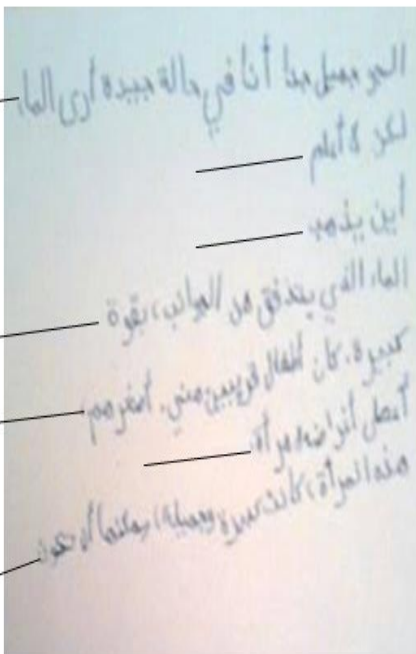 الجو جميل جدا أنا في حالة جيدة أرى الماء
لكن لا أعلم
أين يذهب
الماء الذي يتدفق من الجوانب، بقوة
كبيرة، كان أطفال قريبين مني. أصغرهم
امرأة،
هذه المرأة، كانت كبيرة وجميلة، يمكنها أن تكون